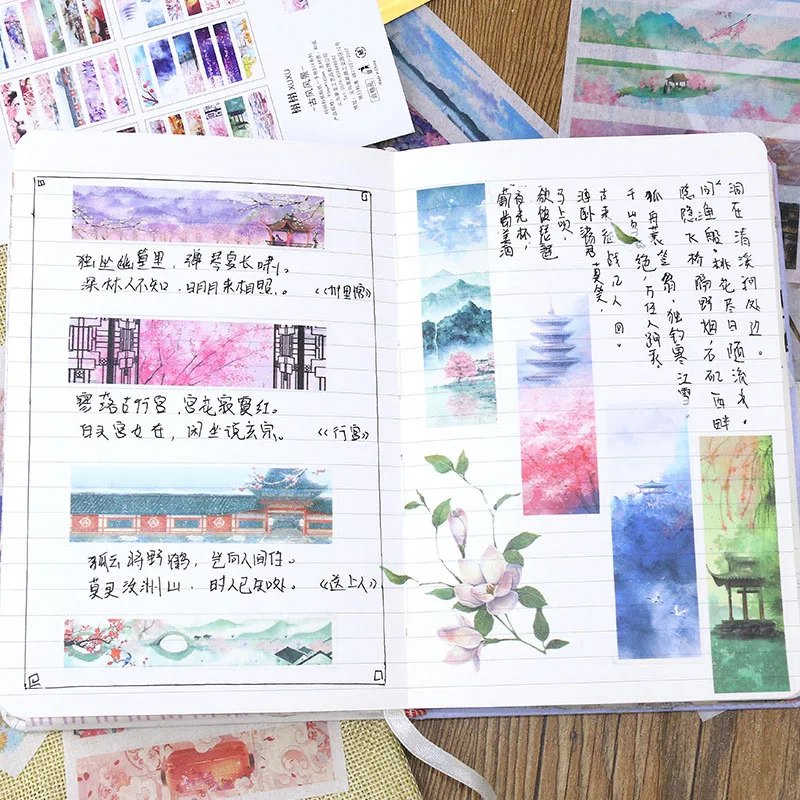 栩栩 XUXU
-古风风景-
独坐幽篁里，弹琴复长啸。
深林人不知，明月来相照。《竹里馆》
寥落古行宫，宫花寂寞红。
白头宫女在，闲坐说玄宗。《行宫》
孤云将野鹤，岂向人间住。
莫买沃洲山，时人已知处。《送上人》
葡萄美酒
夜光杯，
欲饮琵琶
马上催，
醉卧沙场君莫笑，
古来征战几人回。
千山 绝，万径人踪灭，
孤舟蓑笠翁，独钓寒江雪
隐隐飞桥隔野烟，石矶西畔
问渔船，桃花尽日随流水。
洞在清溪何处边。